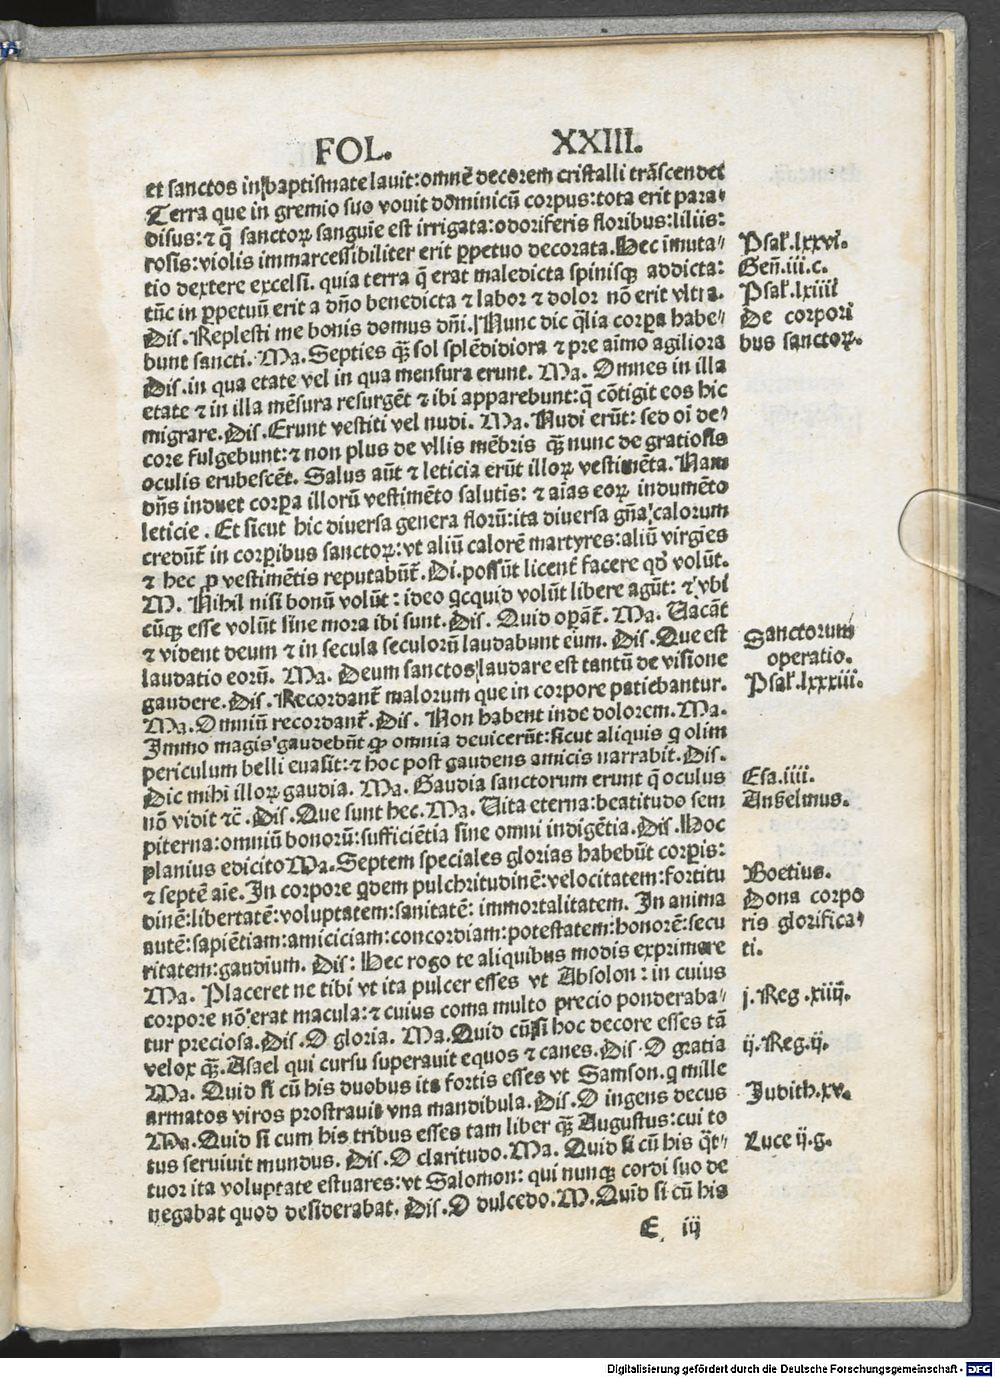 FOL. XXIII.
et sanctos in baptismate lauit:omnē decorem cristalli trāscendet
Terra que in gremio suo vouit dominicū corpus:tota erit para-
disus:⁊ q̄ sanctoꝝ sanguīe est irrigata:odoriferis floribus:liliis:
rosis:violis immarcessibiliter erit ꝑpetuo decorata.Hec īmuta-
tio dextere excelsi. quia terra q̄ erat maledicta spinisqꝫ addicta:
tūc in ꝑpetuū erit a dño benedicta ⁊ labor ⁊ dolor nō erit vltra.
Dis.Replesti me bonis domus dñi.Nunc dic q̄lia corꝑa habe-
bunt sancti. Ma.Septies qꝫ̄ sol splēdidiora ⁊ pre aīmo agiliora
Dis.in qua etate vel in qua mensura erunt. Ma. Omnes in illa
etate ⁊ in illa mēsura resurgēt ⁊ ibi apparebunt:q̄ cōtigit eos hic
migrare.Dis.Erunt vestiti vel nudi. Ma.Nudi erūt:sed oī de-
core fulgebunt:⁊ non plus de vllis mēbris qꝫ̄ nunc de gratiosis
oculis erubescēt. Salus aūt ⁊ leticia erūt illoꝝ vestimēta.Nam
dñs induet corꝑa illorū vestimēto salutis: ⁊ aīas eoꝝ indumēto
leticie. Et sicut hic diuersa genera florū:ita diuersa gña calorum
credūt in corꝑibus sanctoꝝ:vt aliū calorē martyres:aliū virgīes
⁊ hec ꝓ vestimētis reputabūt.Di.possūt licent facere qd volūt.
M. Nihil nisi bonū volūt: ideo qcquid volūt libere agūt: ⁊ vbi
cūqꝫ esse volūt sine mora ibi sunt.Dis. Quid oꝑāt. Ma. Uacāt
⁊ vident deum ⁊ in secula seculorū laudabunt eum. Dis.Que est
laudatio eorū. Ma. Deum sanctos laudare est tantū de visione
gaudere.Dis.Recordant malorum que in corpore patiebantur.
Ma.Omniū recordant.Dis. Non habent inde dolorem.Ma.
Immo magis gaudebūt ꝙ omnia deuicerūt:sicut aliquis q olim
periculum belli euasit:⁊ hoc post gaudens amicis narrabit.Dis.
Dic mihi illoꝝ gaudia. Ma. Gaudia sanctorum erunt q̄ oculus
nō vidit ⁊c̄.Dis.Que sunt hec.Ma. Uita eterna:beatitudo sem
piterna:omniū bonorū:sufficiētia sine omni indigētia.Dis.Hoc
planius edicito Ma.Septem speciales glorias habebūt corꝑis:
⁊ septē aīe.In corpore qdem pulchritudinē:velocitatem:fortitu
dinē:libertatē:voluptatem:sanitatē: immortalitatem. In anima
autē:sapiētiam:amiciciam:concordiam:potestatem:honorē:secu
ritatem:gaudium. Dis: Hec rogo te aliquibus modis exprimere
Ma. Placeret ne tibi vt ita pulcer esses vt Absolon: in cuius
corpore nō erat macula:⁊ cuius coma multo precio ponderaba-
tur preciosa.Dis.O gloria. Ma.Quid cū si hoc decore esses tā
velox qꝫ̄.Asael qui cursu superauit equos ⁊ canes.Dis.O gratia
Ma. Quid si cū his duobus ita fortis esses vt Samson.q mille
armatos viros prostrauit vna mandibula.Dis.O ingens decus
Ma.Quid si cum his tribus esses tam liber qꝫ̄ Augustus:cui to
tus seruiuit mundus. Dis.O claritudo.Ma. Quid si cū his q̄t-
tuor ita voluptate estuares:vt Salomon: qui nunqꝫ cordi suo de
negabat quod desiderabat. Dis.O dulcedo.M.Quid si cū his
E iij
Psal.lxxvi.
Gen̄.iii.c.
Psal.lxiiii
De corpori
bus sanctoꝝ.
Sanctorum
operatio.
Psal.lxxxiii.
Esa.iiii.
Anselmus.
Boetius.
Dona corpo
ris glorifica-
ti.
j.Reg.xiiij.
ij.Reg.ij.
Judith.xv.
Luce ij.g.
Digitalisierung gefördert durch die Deutsche Forschungsgemeinschaft - DFG